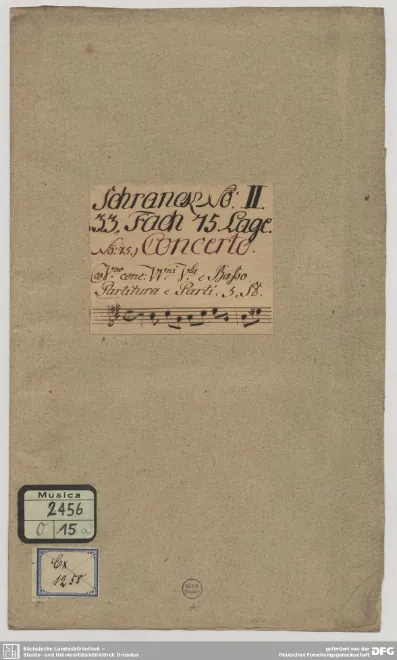 Schranck No: II.
33. Fach 15. Lage.
No: 15.) Concerto.
co Vno conc: Vv:ni V:la e Basso
Partitura e Parti. 5. St.
Musica
2456
O 15a
Cx
1258
Sächsische Landesbibliothek –
Staats- und Universitätsbibliothek Dresden
gefördert von der
Deutschen Forschungsgemeinschaft
DFG